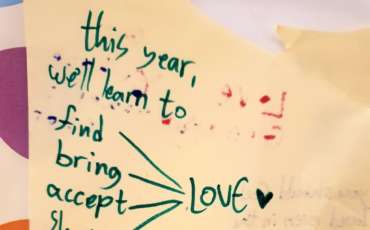 this year,
we'll learn to
find
bring
accept
LOVE ♥